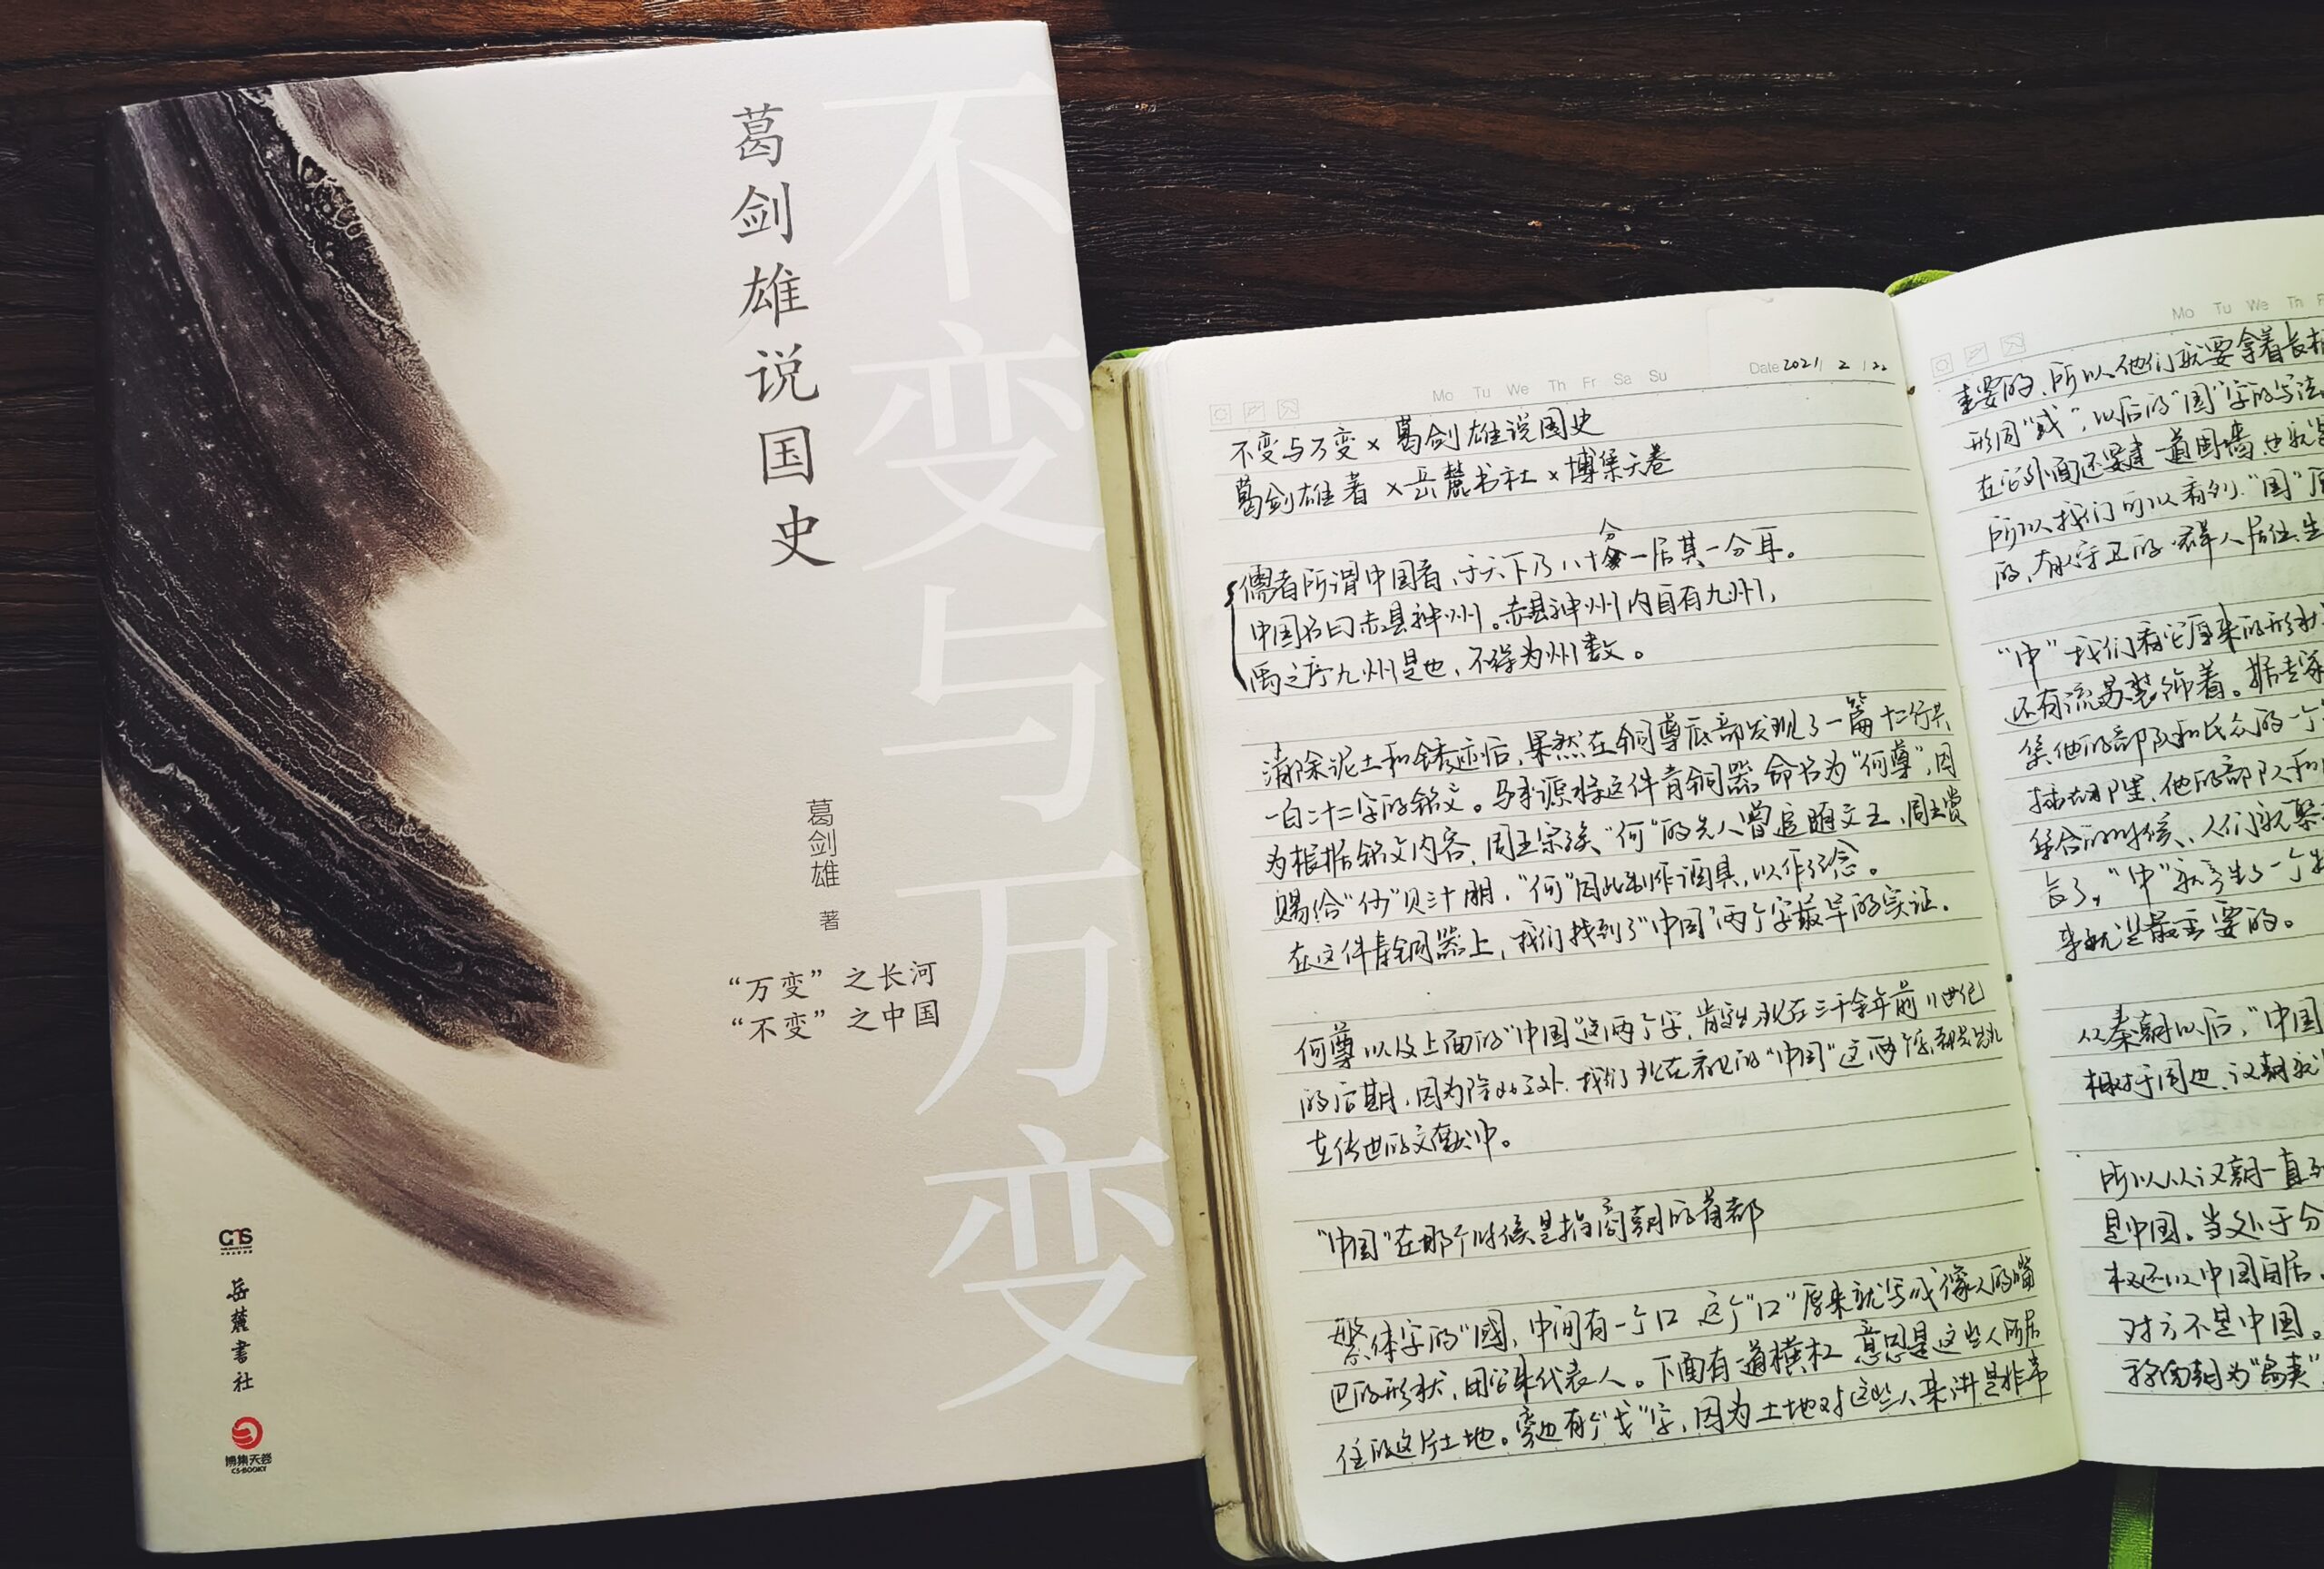 不变与万变
葛剑雄说国史
葛剑雄 著
“万变”之长河
“不变”之中国
岳麓書社
博集天卷
CS-BOOKY
Mo Tu We Th Fr Sa Su
Date 2021 / 2 / 22
不变与万变×葛剑雄说国史
葛剑雄著×岳麓书社×博集天卷
分
儒者所谓中国者，于天下乃八十一居其一分耳。
中国名曰赤县神州。赤县神州内自有九州，
禹之序九州是也，不得为州数。
清除泥土和锈迹后，果然在铜尊底部发现了一篇十二行共
一百二十二字的铭文。马承源将这件青铜器命名为“何尊”，因
为根据铭文内容，周王宗族“何”的先人曾追随文王，周王赏
赐给“何”贝三十朋，“何”因此制作酒具，以作纪念。
在这件青铜器上，我们找到了“中国”两个字最早的实证。
何尊以及上面的“中国”这两个字，肯定出现在三千余年前11世纪
的后期，因为除此之外，我们现在看见的“中国”这两个字都是出现
在传世的文献中。
“中国”在那个时候是指商朝的首都
繁体字的“國，中间有一个口 这个“口”原来就写成像人的嘴
巴的形状，用它来代表人。下面有一道横杠 意思是这些人所居
住的这片土地。旁边有个“戈”字，因为土地对这些人来讲是非常
Mo Tu We Th F
重要的，所以他们就要拿着长
形同“或”，以后的“国”字的写法
在它外面还要建一道围墙，也就
所以我们可以看到，“国”
的，有人守卫的 群人居住生
“中”我们看它原来的形状
还有流苏装饰着。据专家
集他的部队和民众的一个
插在那里，他的部队和
集合的时候，人们就聚
长了，“中”就产生了一个
来就是最重要的。
从秦朝以后，“中国
相对于周边，汉朝就
所以从汉朝一直到
是中国。当处于分
权还以中国自居，
对方不是中国。
称南朝为“岛夷”，